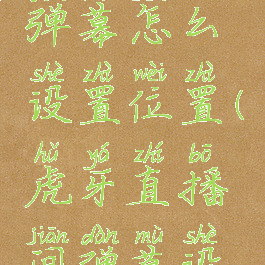 弹幕怎么
shè zhì wèi zhì
设置位置(
hǔ yá zhí bō
虎牙直播
jiān dàn mù shè
间弹幕设